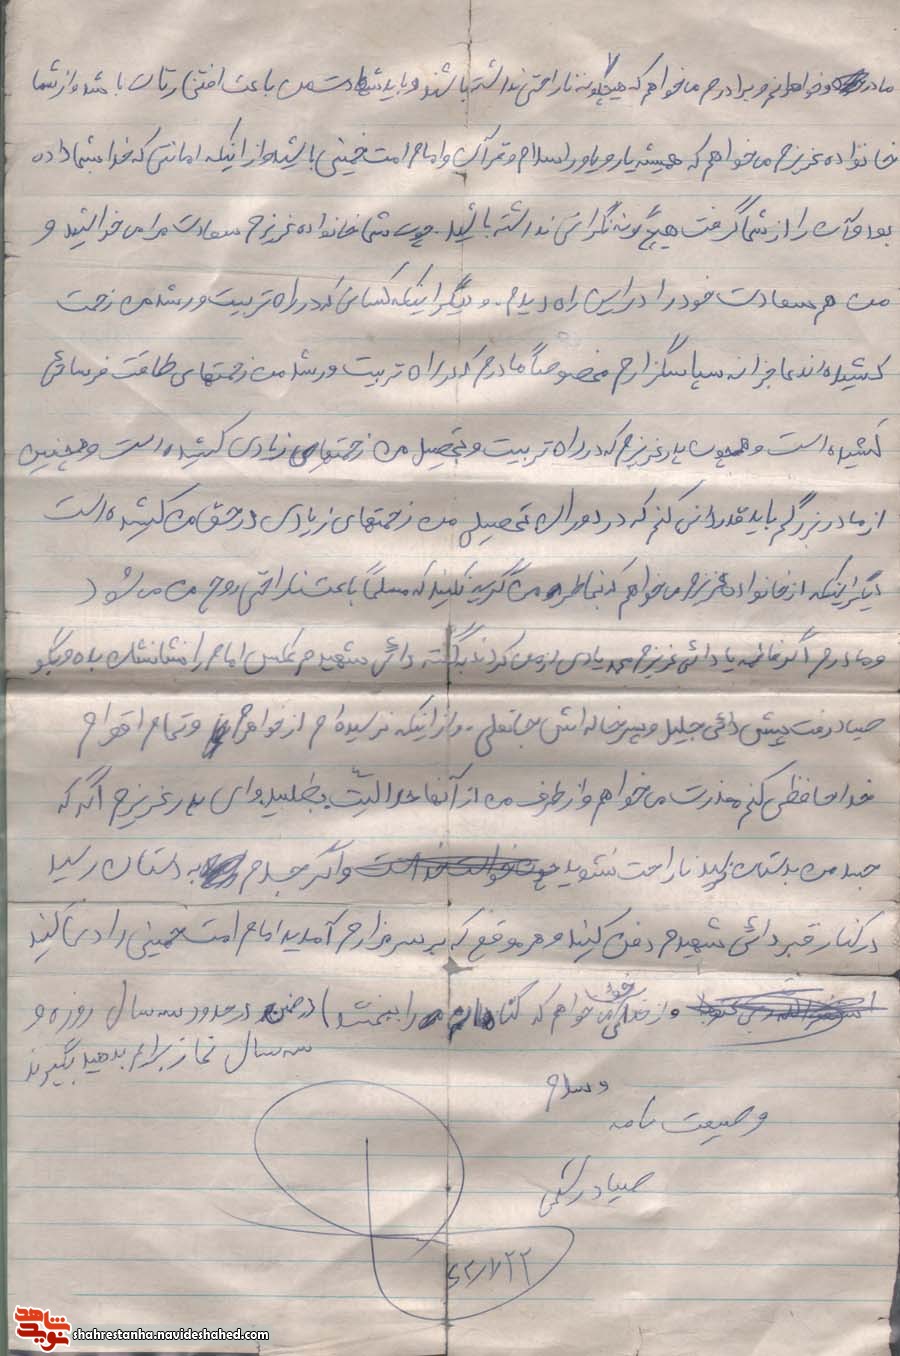 مادر و خواهرانم و برادرم می خواهم که هیچگونه ناراحتی نداشته باشند و باید شهادت من باعث افتخارتان باشد و از شما
خانواده عزیزم می خواهم که همیشه یار و یاور اسلام و قرآن و امام امت خمینی باشید و از اینکه امانتی که خدا بشما داده
بود و آن را از شما گرفت هیچ گونه نگرانی نداشته باشید. چون شما خانواده عزیزم سعادت مرا می خواستید و
من هم سعادت خود را در این راه دیدم. و دیگر اینکه کسانی که در راه تربیت و رشد من زحمت
کشیده اند عاجزانه سپاسگزارم مخصوصاً مادرم که در راه تربیت و رشد من زحمتهای طاقت فرسائی
کشیده است و همچون پدر عزیزم که در راه تربیت و تحصیل من زحمتهای زیادی کشیده است و همچنین
از مادربزرگم باید قدردانی کنم که در دوران تحصیلی من زحمتهای زیادی در حق من کشیده است
دیگر اینکه از خانواده عزیزم می خواهم که بخاطر من گریه نکنید که مسلماً باعث ناراحتی روح من می شود
و مادرم اگر فاطمه یا دائی عزیزم یادی از من کردند یا گفته دائی شهیدم عکس امام را نشانشان بده و بگو
صیاد رفت پیش دائی جلیل و پسر خاله اش . و از اینکه نرسیده ام از خواهرم و تمام اقوام
خداحافظی کنم معذرت می خواهم و از طرف من از آنها حلالیت بطلبید و ای پدر عزیزم اگر که
جسد من بدستتان نرسید ناراحت نشوید و اگر جسدم به دستتان رسید
در کنار قبر دائی شهیدم دفن کنید و هر موقع که بر سر مزارم آمدید امام امت خمینی را دعا کنید
و از خدا می خواهم که گناهانم را ببخشد) در ضمن در حدود سه سال روزه و
سه سال نماز برایم بدهید بگیرند
وسلام
وصیعت نامه
صیاد
۶۲/۱/۲۲
نوید شاهد
shahrestanha.navideshahed.com